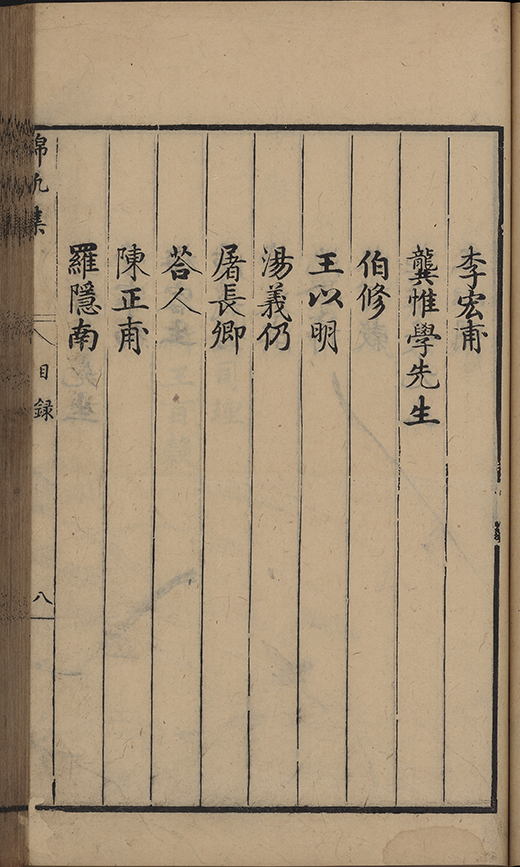 李宏甫
龔惟學先生
伯修
王以明
湯義仍
屠長卿
荅人
陳正甫
羅隱南
錦凢集
目録
八